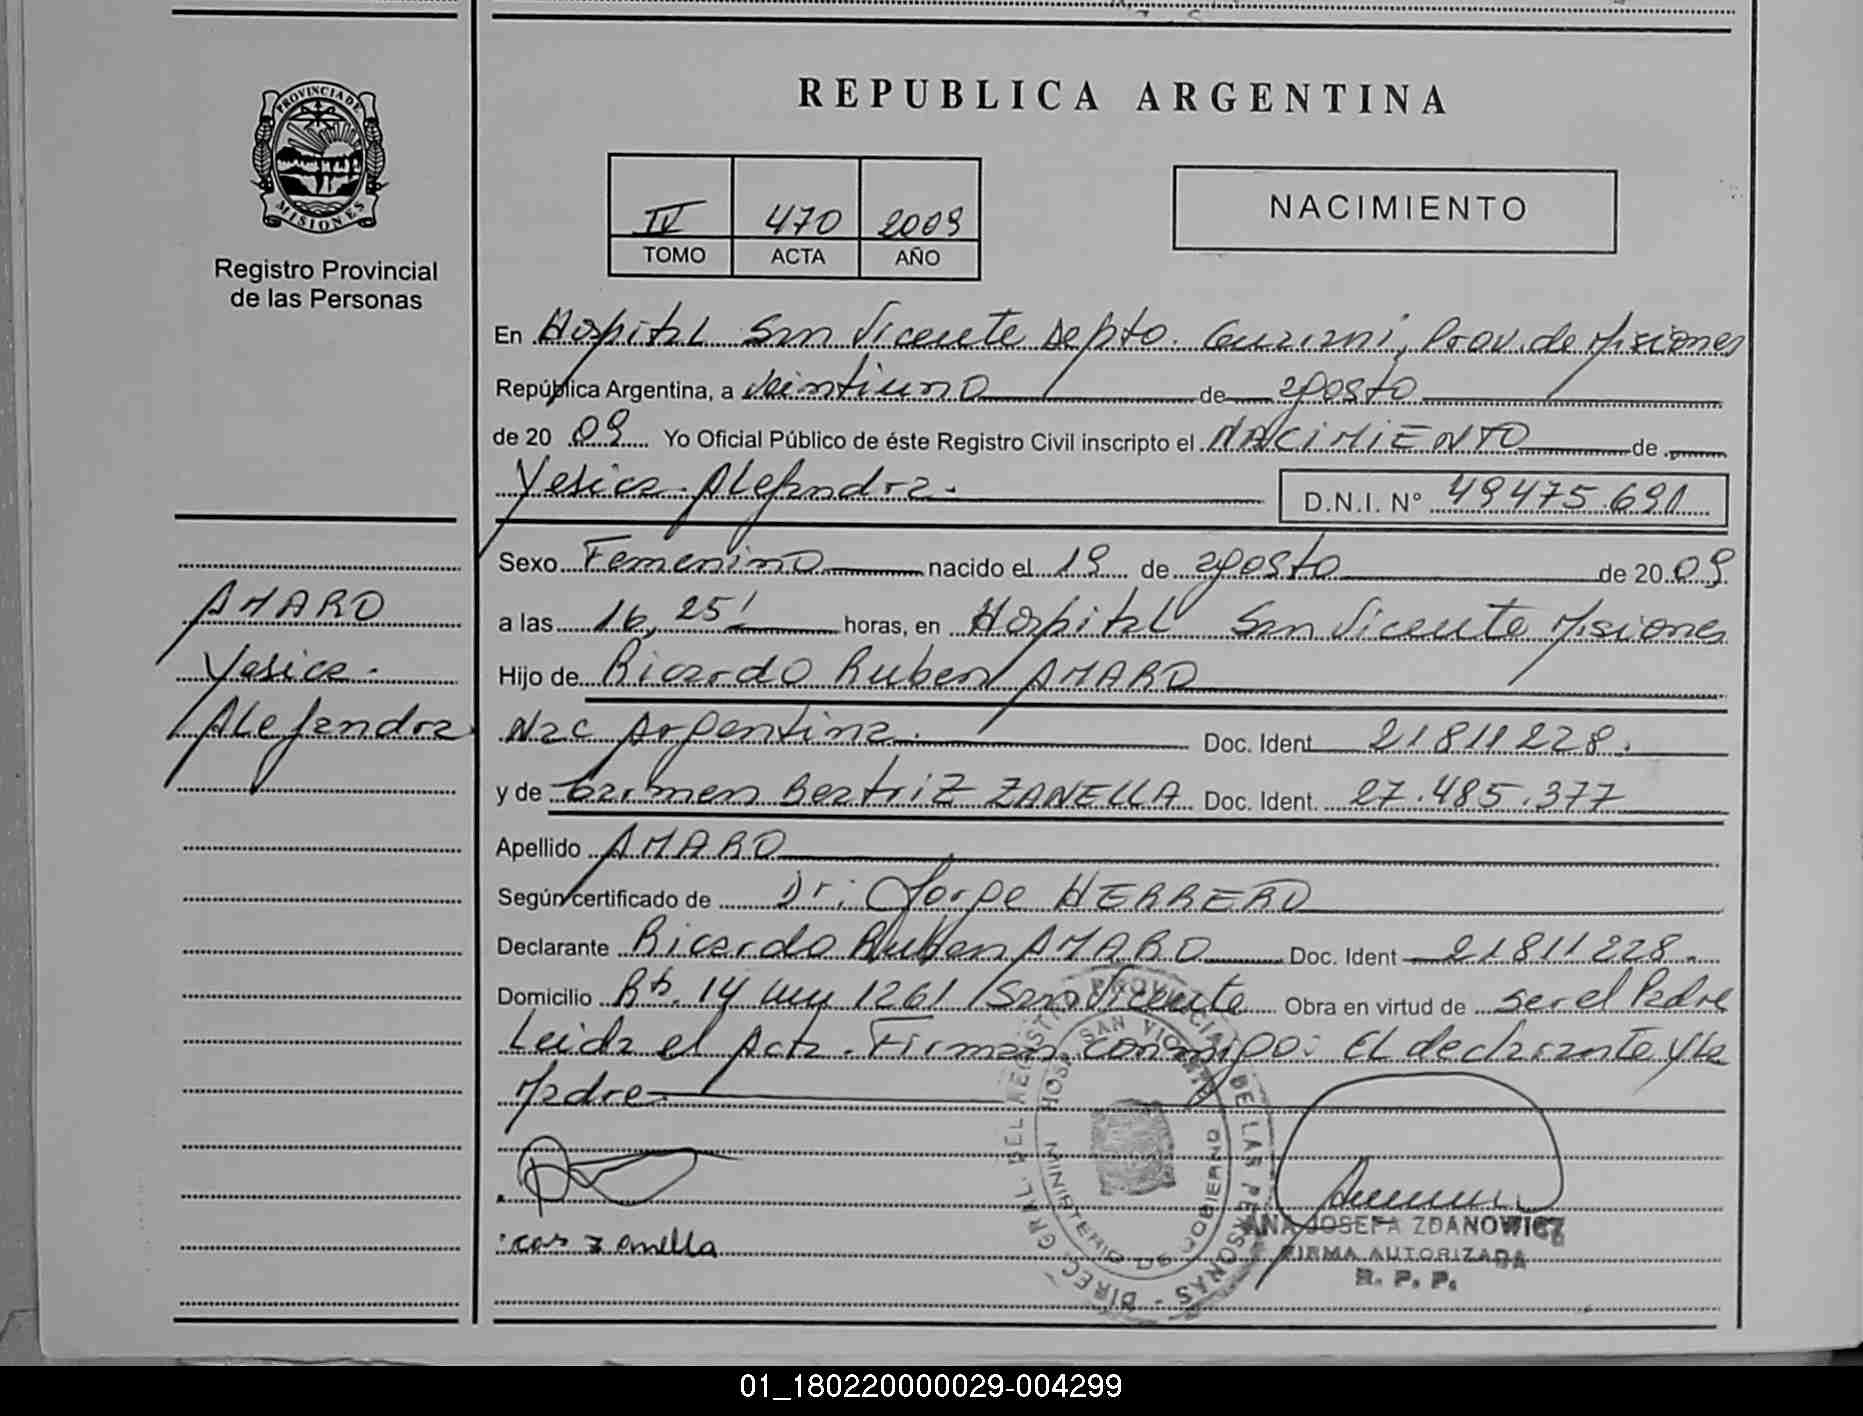 PROVINCIA DE
MISIONES
Registro Provincial
de las Personas
AMARO
Yesica
Alejandra
REPUBLICA ARGENTINA
IV 470 2009
TOMO ACTA AÑO
NACIMIENTO
En Hospital San Vicente Depto. Guarani, Prov. de Misiones
República Argentina, a Veintiuno de agosto
de 20 09 Yo Oficial Público de éste Registro Civil inscripto el NACIMIENTO de
Yesica Alejandra. D.N.I. Nº 49475.691
Sexo Femenino nacido el 19 de agosto de 20 09
a las 16,25' horas, en Hospital San Vicente Misiones
Hijo de Ricardo Ruben AMARO
Nac Argentina. Doc. Ident 21811228.
y de Carmen Beatriz ZANELLA Doc. Ident. 27.485.377
Apellido AMARO
Según certificado de Dr: Jorge HERRERO
Declarante Ricardo Ruben AMARO Doc. Ident 21811228.
Domicilio Rta. 14 km 1261 San Vicente Obra en virtud de ser el Padre
Leida el Acta. Firman conmigo: El declarante y la
Madre
zanella
DIREC. GRAL. DEL REGISTRO PROVINCIAL DE LAS PERSONAS
HOSP. SAN VICENTE
MINISTERIO DE GOBIERNO
ANA JOSEFA ZDANOWICZ
FIRMA AUTORIZADA
R. P. P.
01_180220000029-004299